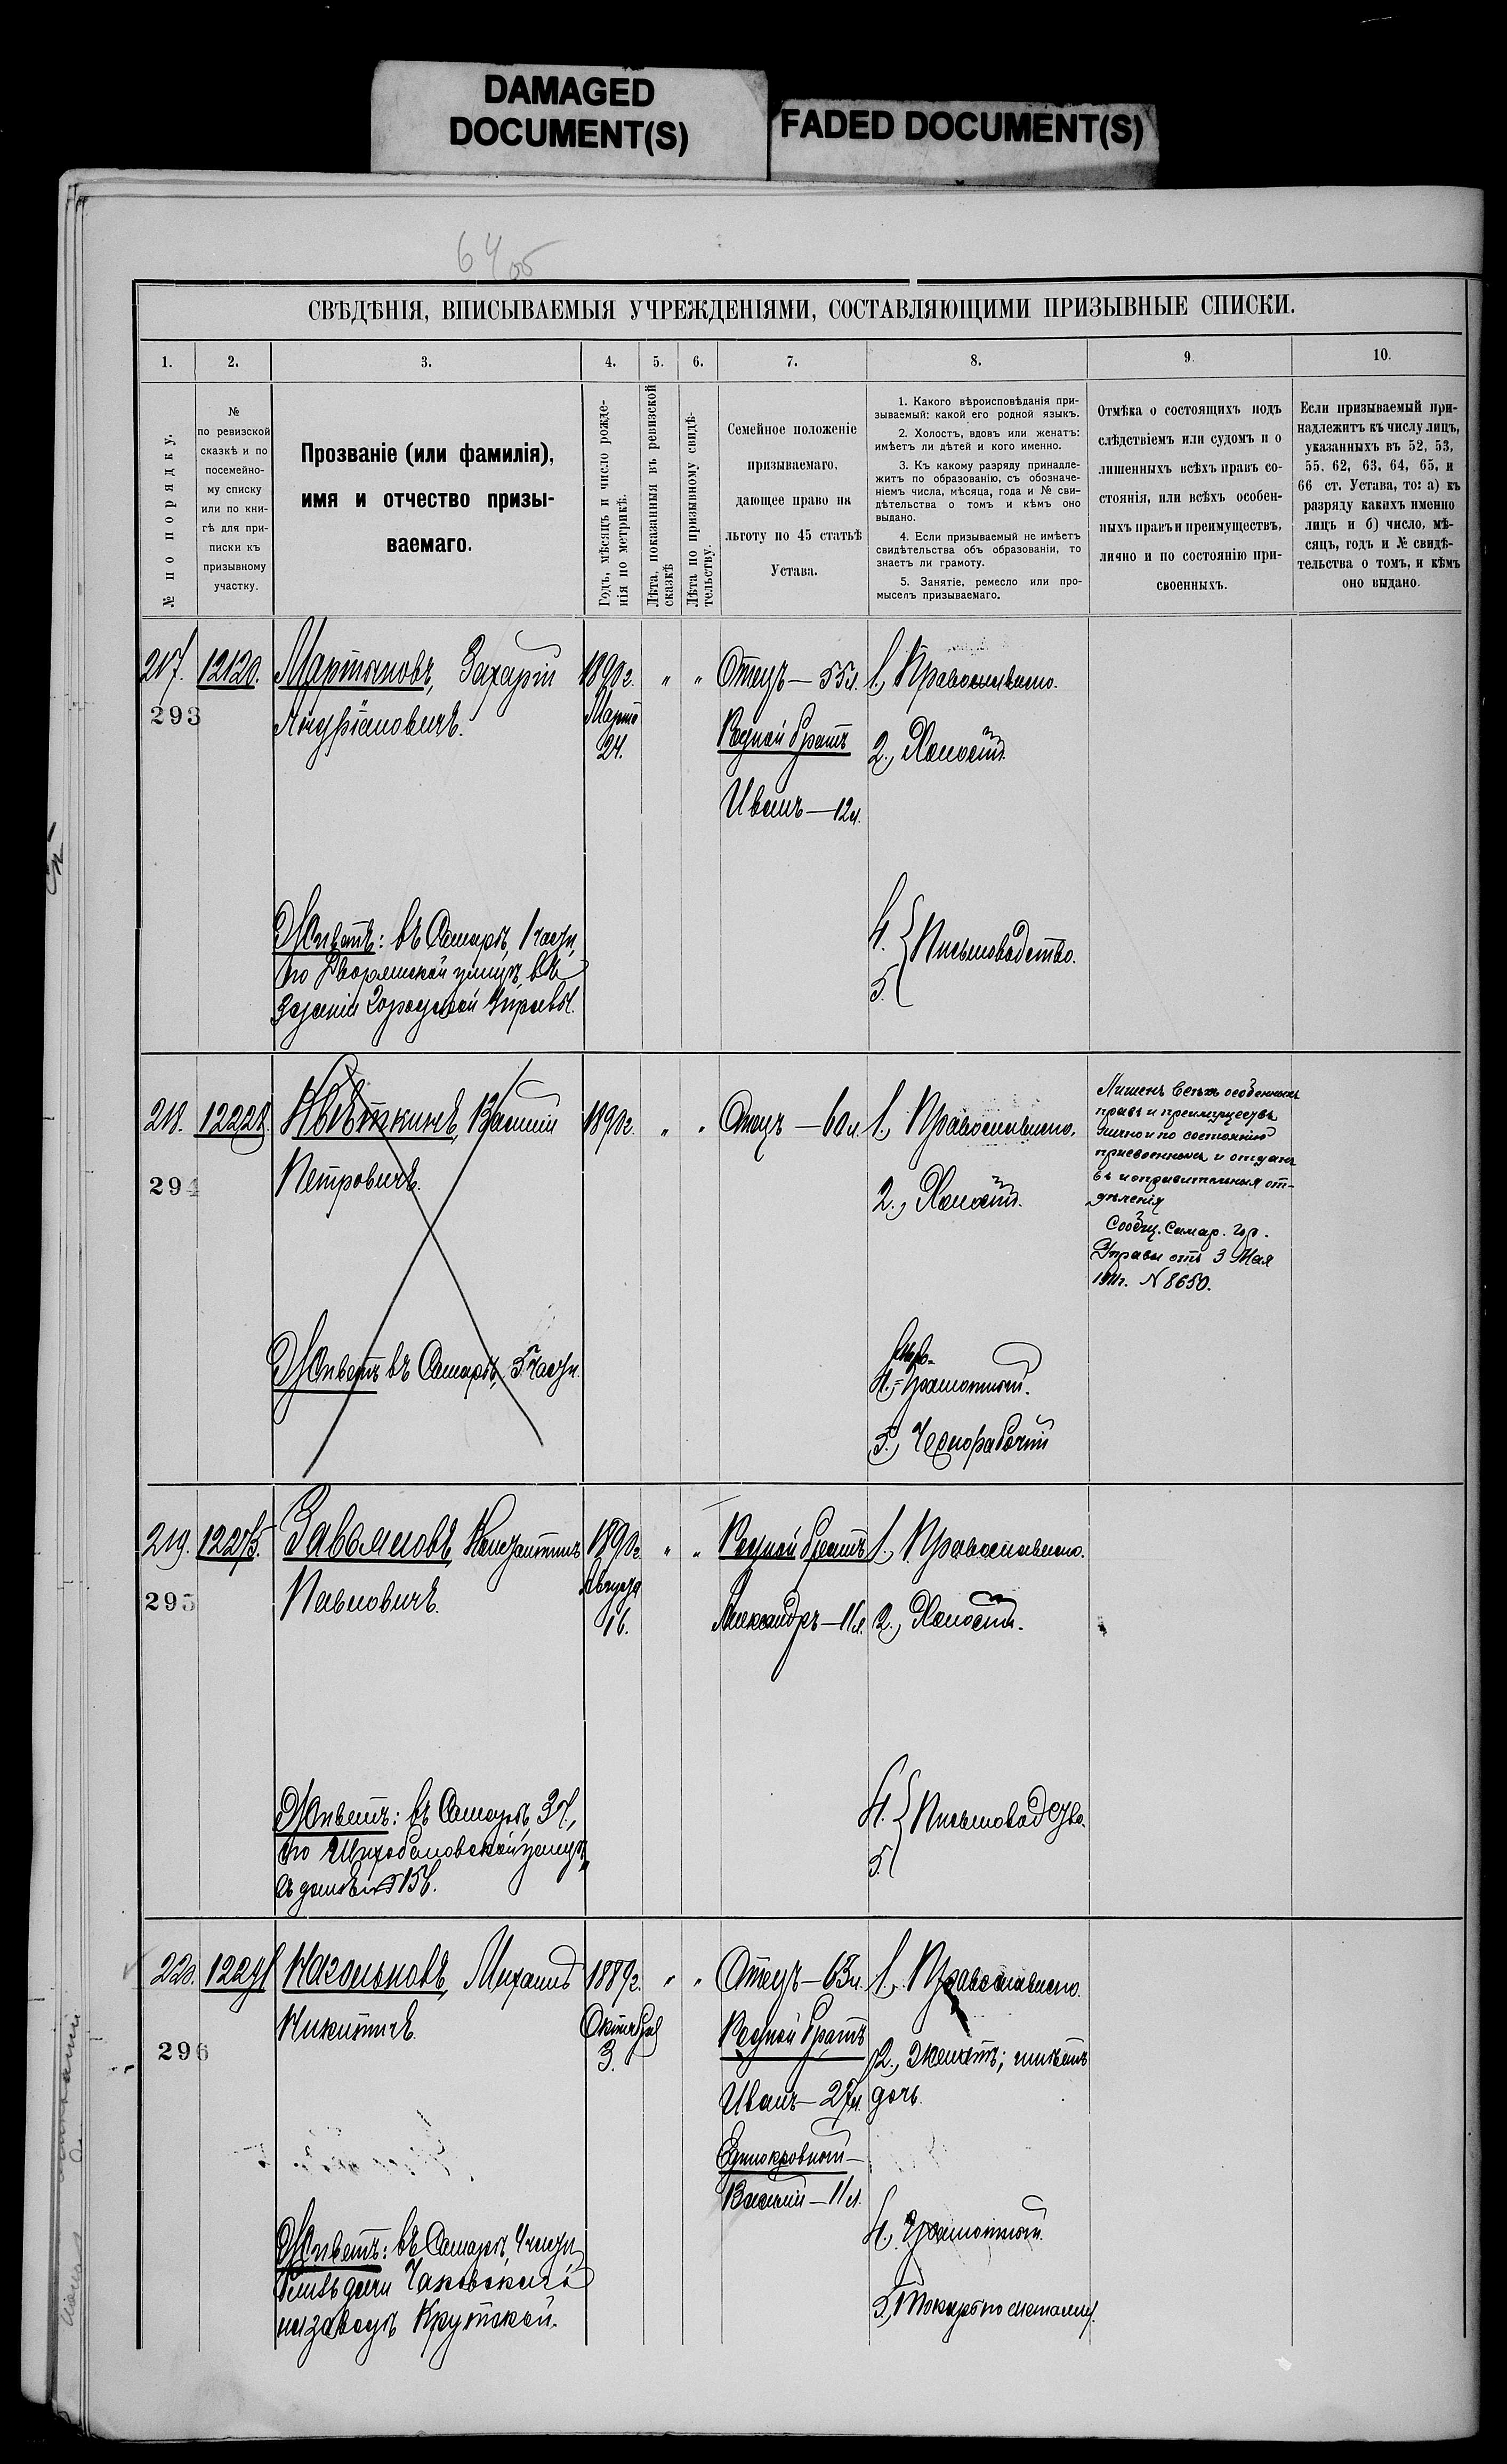 DAMAGED
DOCUMENT(S)
FADED DOCUMENT(S)
64 об
СВѢДѢНІЯ, ВПИСЫВАЕМЫЯ УЧРЕЖДЕНІЯМИ, СОСТАВЛЯЮЩИМИ ПРИЗЫВНЫЕ СПИСКИ.
1.
2.
3.
4.
5.
6.
7.
8.
9.
10.
№ по порядку.
№
по ревизской
сказкѣ и по
посемейно-
му списку
или по кни-
гѣ для при-
писки къ
призывному
участку.
Прозваніе (или фамилія),
имя и отчество призы-
ваемаго.
Годъ, мѣсяцъ и число рожде-
нія по метрикѣ.
Лѣта, показанныя въ ревизской
сказкѣ
Лѣта по призывному свидѣ-
тельству.
Семейное положеніе
призываемаго,
дающее право на
льготу по 45 статьѣ
Устава.
1. Какого вѣроисповѣданія при-
зываемый: какой его родной языкъ.
2. Холостъ, вдовъ или женатъ:
имѣетъ ли дѣтей и кого именно.
3. Къ какому разряду принадле-
житъ по образованію, съ обозначе-
ніемъ числа, мѣсяца, года и № сви-
дѣтельства о томъ и кѣмъ оно
выдано.
4. Если призываемый не имѣетъ
свидѣтельства объ образованіи, то
знаетъ ли грамоту.
5. Занятіе, ремесло или про-
мыселъ призываемаго.
Отмѣка о состоящихъ подъ
слѣдствіемъ или судомъ и о
лишенныхъ всѣхъ правъ со-
стоянія, или всѣхъ особен-
ныхъ правъ и преимуществъ,
лично и по состоянію при-
своенныхъ.
Если призываемый при-
надлежитъ къ числу лицъ,
указанныхъ въ 52, 53,
55, 62, 63, 64, 65, и
66 ст. Устава, то: а) къ
разряду какихъ именно
лицъ и б) число, мѣ-
сяцъ, годъ и № свидѣ-
тельства о томъ, и кѣмъ
оно выдано.
217. 12120. Мартяновъ, Захарій
293 Андріановичъ.
1890г.
Марта
24.
" "
Отецъ — 55л.
Родной братъ
Иванъ — 12л.
1., Православнаго.
2., Холостъ.
4.
5. Письмоводство.
Живетъ: въ Самарѣ, 1 части,
по Дворянской улицѣ, въ
зданіи Городской Управы.
218. 12228. Василій
294 Петровичъ.
1890г.
" "
Отецъ — 60л.
1., Православнаго.
2., Холостъ.
4. грамотный.
5., Чернорабочій
Живетъ въ Самарѣ, 5 части.
Лишенъ всѣхъ особенныхъ
правъ и преимуществъ
лично и по состоянію
присвоенныхъ и отданъ
въ исправительныя от-
дѣленія
Сообщ. Самар. Гор.
Управы отъ 3 Мая
1911г. № 8650.
219. 12275. Завьяловъ, Константинъ
295 Павловичъ.
1890г.
Августа
16.
" "
Родной братъ
Александръ — 11л.
1., Православнаго.
2., Холостъ.
4.
5. Письмоводство.
Живетъ: въ Самарѣ, 3 ч.,
по Шихобаловской улицѣ,
въ домѣ № 156.
220. Нагольновъ, Михаилъ
296 Никитичъ.
1889г.
Октября
3.
" "
Отецъ — 63л.
Родной братъ
Иванъ — 27л.
Единокровный —
Василій — 11л.
1., Православнаго.
2., Женатъ; имѣетъ
дочь.
4., Грамотный.
5., Токарь по металлу.
Живетъ: въ Самарѣ, 4 части